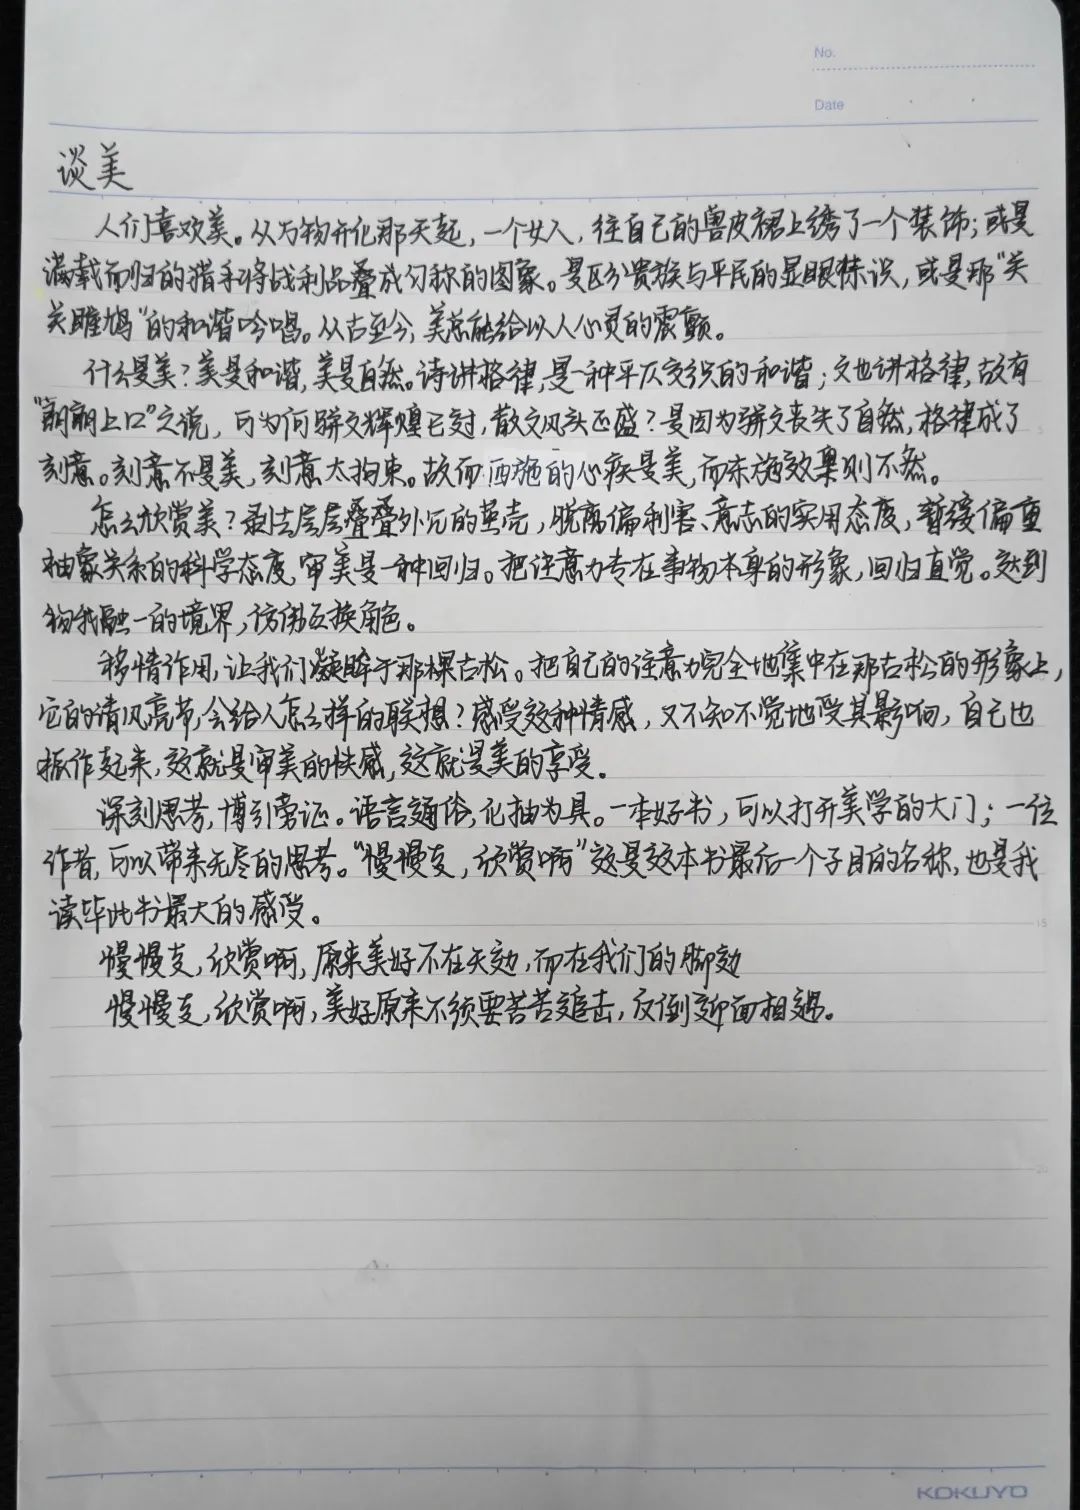 No.
Date
谈美
人们喜欢美。从万物开化那天起，一个女人，往自己的兽皮裙上绣了一个装饰；或是
满载而归的猎手将战利品叠成匀称的图象。是区分贵族与平民的显眼标识，或是那“关
关雎鸠”的和谐吟唱。从古至今，美总能给以人心灵的震颤。
什么是美？美是和谐，美是自然。诗讲格律，是一种平仄交织的和谐；文也讲格律，故有
“朗朗上口”之说，可为何骈文辉煌已过，散文风头正盛？是因为骈文丧失了自然，格律成了
刻意。刻意不是美，刻意太拘束。故而西施的心疾是美，而东施效颦则不然。
怎么欣赏美？剥去层层叠叠外冗的茧壳，脱离偏利害、意志的实用态度，暂缓偏重
抽象关系的科学态度，审美是一种回归。把注意力专在事物本身的形象，回归直觉。达到
物我融一的境界，仿佛互换角色。
移情作用，让我们凝眸于那棵古松。把自己的注意力完全地集中在那古松的形象上，
它的清风亮节，会给人怎么样的联想？感受这种情感，又不知不觉地受其影响，自己也
振作起来，这就是审美的快感，这就是美的享受。
深刻思考，博引旁证。语言通俗，化抽为具。一本好书，可以打开美学的大门；一位
作者，可以带来无尽的思考。“慢慢走，欣赏啊”这是这本书最后一个子目的名称，也是我
读毕此书最大的感受。
慢慢走，欣赏啊，原来美好不在天边，而在我们的脚边
慢慢走，欣赏啊，美好原来不须要苦苦追击，反倒迎面相遇。
KOKUYO